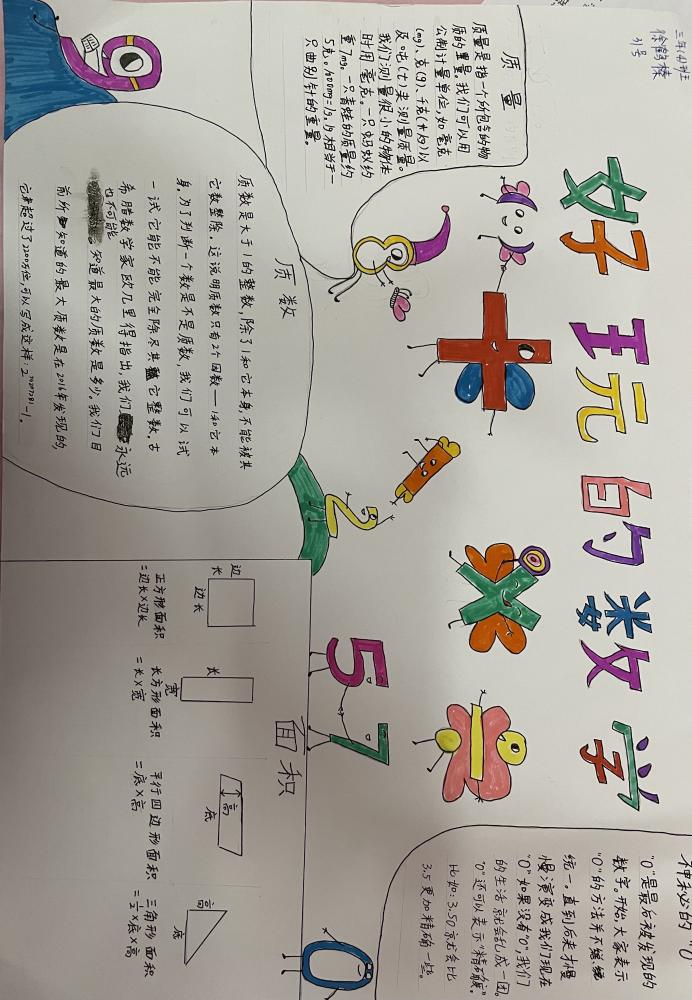 三年(4)班
徐鹤榛
31号
好玩的数学
质量
质量是指一个所包含的物
质的重量。我们可以用
公制计量单位,如毫克
(mg)、克(g)、千克(kg)以
及吨(t)来测量质量。
我们测量很小的物体
时用毫克。一只蚂蚁约
重7mg。一只青蛙的质量约
5克。1000mg=1g。1g相当于一
只曲别针的重量。
质数
质数是大于1的整数,除了1和它本身不能被其
它数整除。这说明质数只有2个因数——1和它本
身。为了判断一个数是不是质数,我们可以试
一试它能不能完全除尽其它整数。古
希腊数学家欧几里得指出,我们永远
也不可能知道最大的质数是多少。我们目
前所知道的最大质数是在2016年发现的,
它超过了2200万位,可以写成这样:2⁷⁴²⁰⁷²⁸¹-1。
面积
边长
边长
正方形面积
=边长×边长
长
宽
长方形面积
=长×宽
高
底
平行四边形面积
=底×高
高
底
三角形面积
=½×底×高
5
7
2
8
0
神秘的"0"
"0"是最后被发现的
数字。开始,大家表示
"0"的方法并不
统一。直到后来才慢
慢演变成我们现在
"0"如果没有"0",我们
的生活就会乱成一团。
"0"还可以表示精确度。
比如:3.50就会比
3.5更加精确一些。